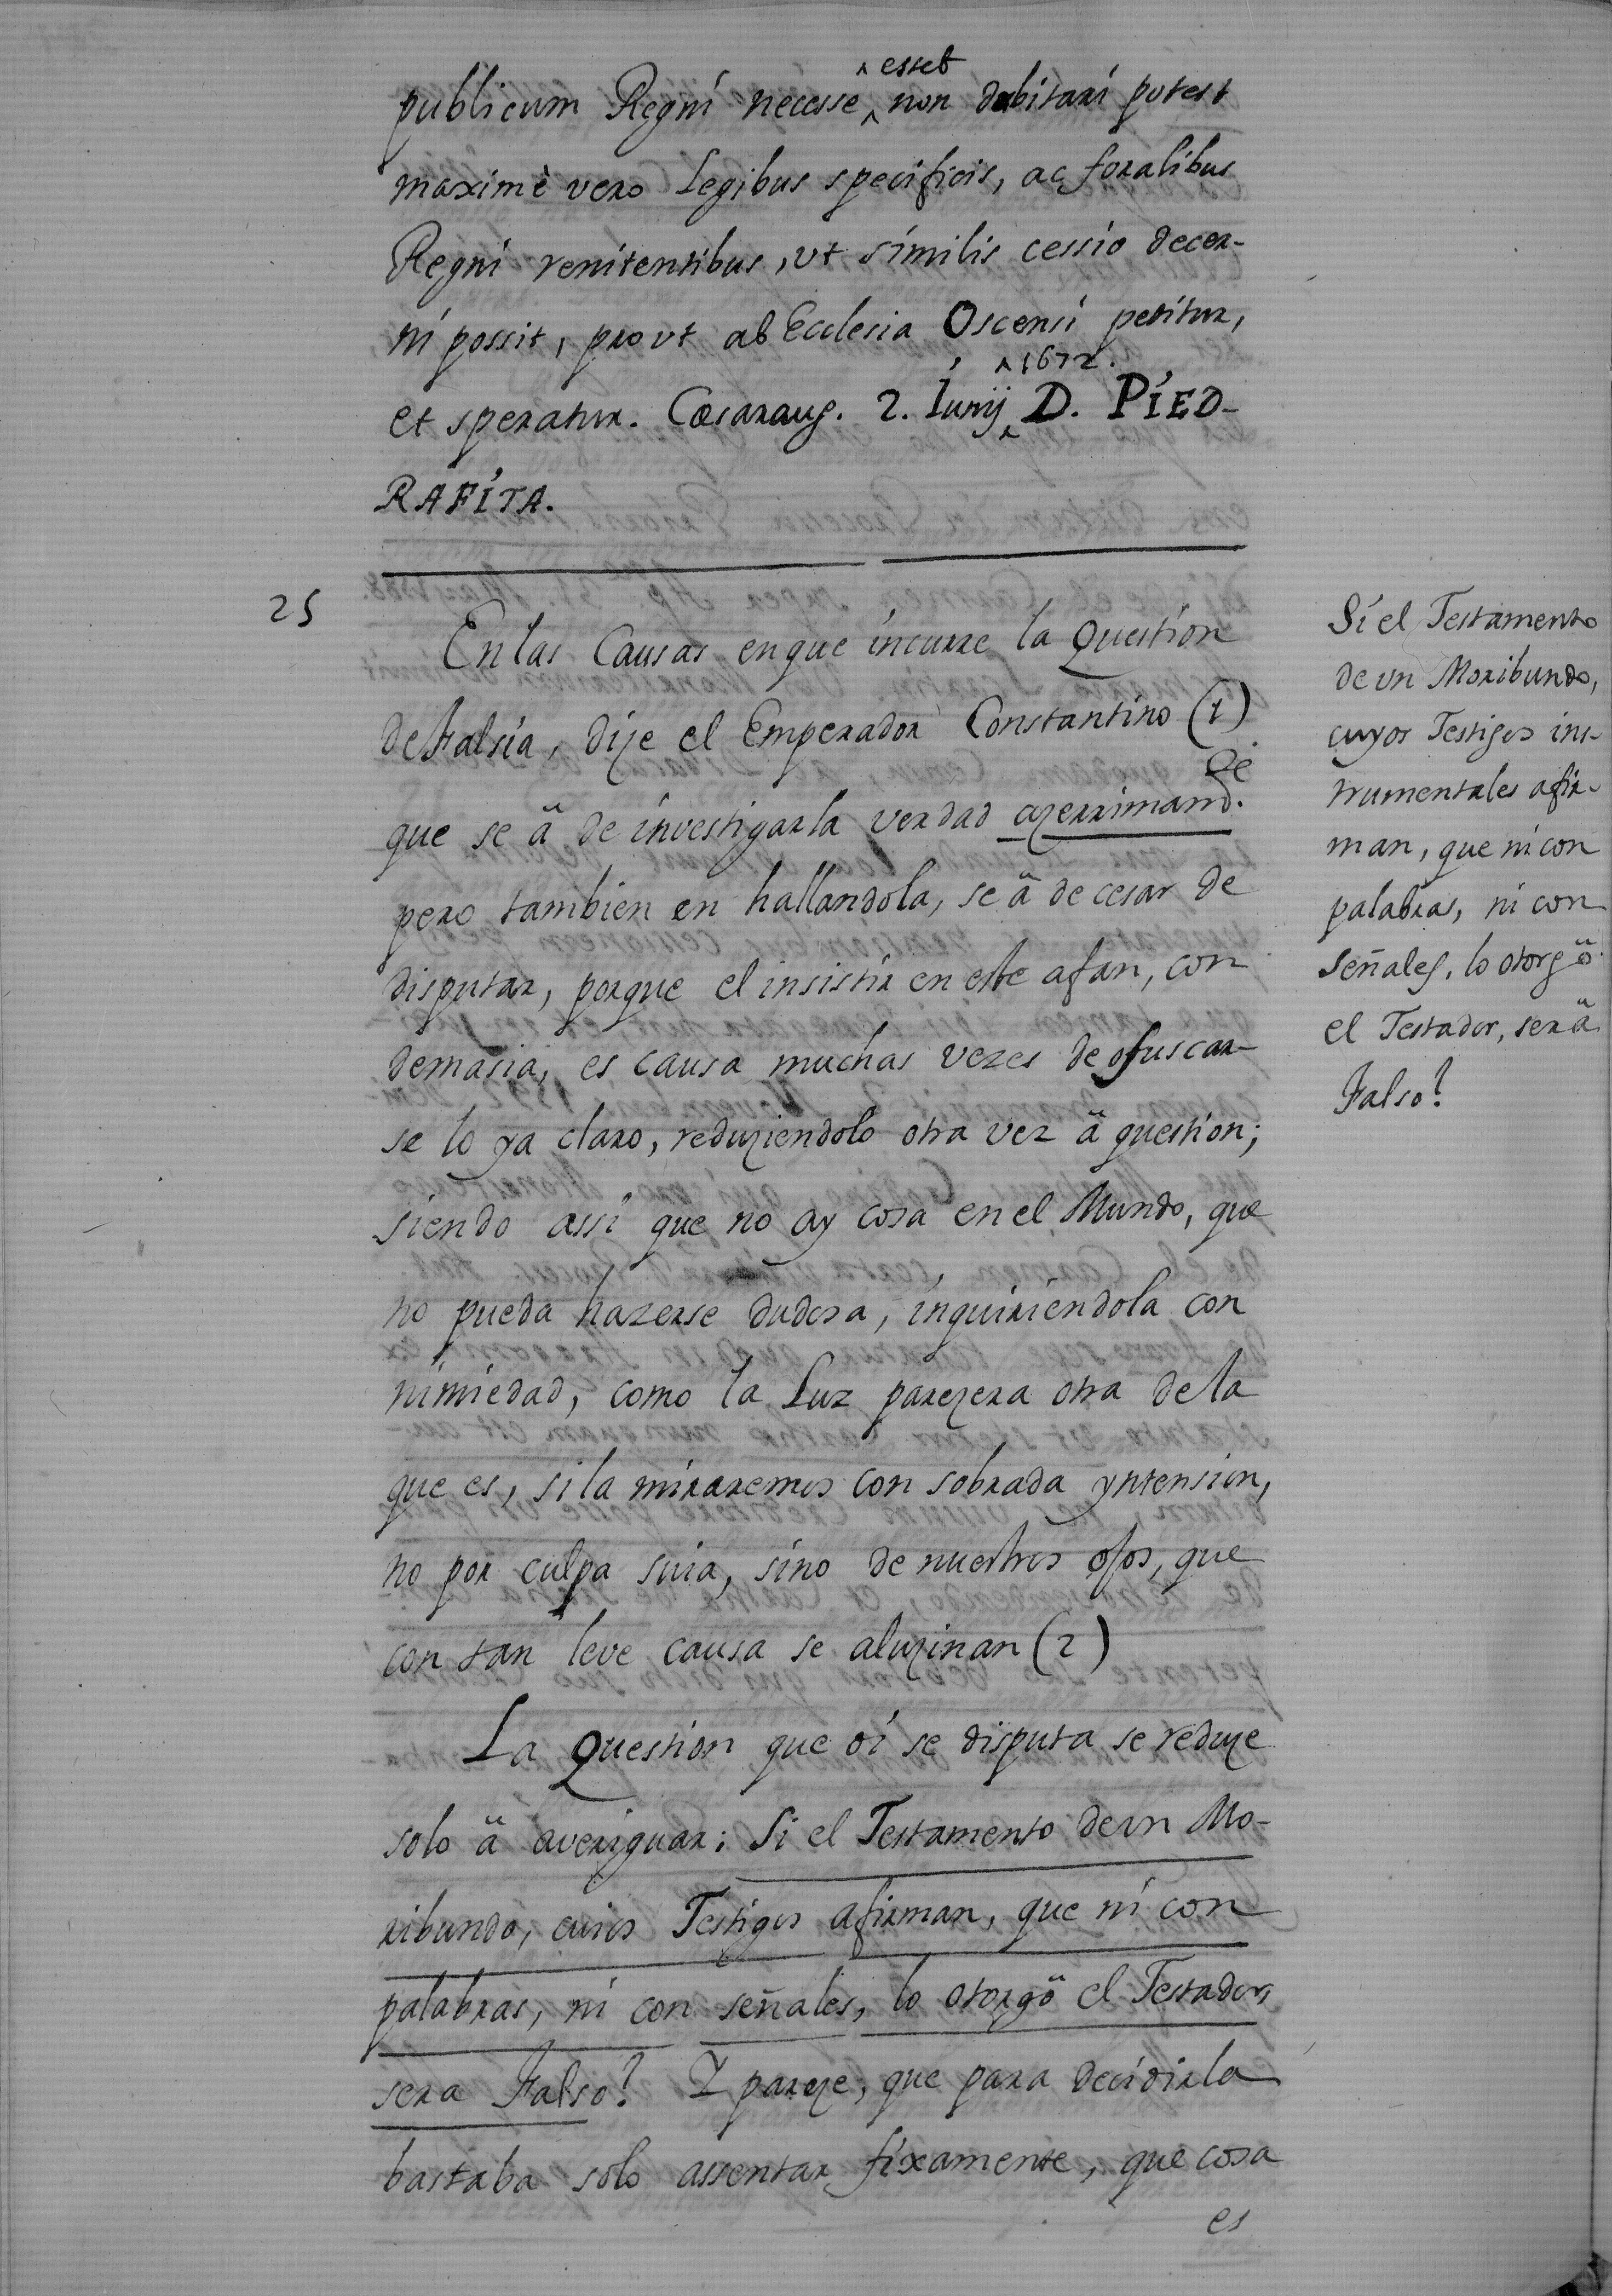 ^ esset
publicum Regni necesse ^ non dubitari potest
maximè vero Legibus specificis, ac foralibus
Regni renitentibus, vt similis cessio decer-
ni possit, prout ab Ecclesia Oscensi petitur,
^ 1672.
et speratur. Cæsaraug. 2. Iunij ^ D. PIED-
RAFITA.
25
En las Causas en que incurre la Question
de Falsia, dije el Emperador Constantino (1)
que se ä de investigar la verdad azerrimamd.e
pero tambien en hallandola, se ä de cesar de
disputar, porque el insistir en este afan, con
demasia, es causa muchas vezes de ofuscar-
se lo ya claro, reduziendolo otra vez ä question;
siendo assi que no ay cosa en el Mundo, que
no pueda hazerse dudosa, inquiriendola con
nimiedad, como la Luz parezera otra de la
que es, si la miraremos con sobrada yntension,
no por culpa suia, sino de nuestros ojos, que
con tan leve causa se aluzinan (2)
La Question que oi se disputa se reduze
solo ä averiguar: Si el Testamento de vn Mo-
ribundo, cuios Testigos afirman, que ni con
palabras, ni con señales, lo otorgö el Testador,
sera Falso? Y pareze, que para decidirla
bastaba solo assentar fixamente, que cosa
es
Si el Testamento
de vn Moribundo,
cuyos Testigos ins-
trumentales afir-
man, que ni con
palabras, ni con
señales, lo otorgö
el Testador, serä
Falso?